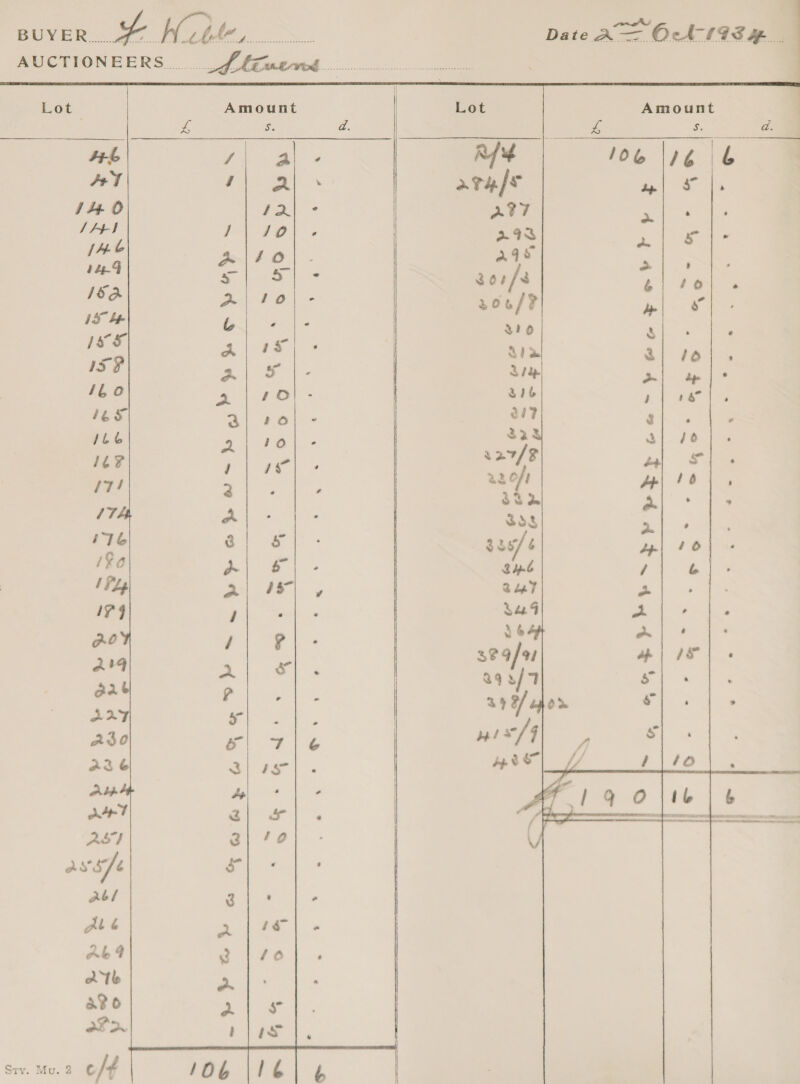 BUYER F. Webb,
Date 2nd Oct 1934
AUCTIONEERS Stevens
Lot Amount Lot Amount
£ s. d. £ s. d.
46 1 2 -
47 1 2 -
140 12 -
141 1 10 -
146 2 10 -
149 5 5 -
152 2 10 -
154 6 - -
155 2 15 -
158 2 5 -
160 2 10 -
165 3 10 -
166 2 10 -
168 1 15 -
171 3 - -
174 2 - -
176 3 5 -
180 2 5 -
184 2 15 -
189 1 - -
207 1 8 -
219 2 5 -
226 8 - -
227 5 - -
230 5 7 6
236 3 15 -
244 4 - -
247 3 5 -
251 3 10 -
255/6 5 - -
261 3 - -
266 2 15 -
269 3 10 -
276 2 - -
280 2 5 -
282 1 15 -
Stv. Mu. 2 c/f 106 16 6
B/f 106 16 6
274/5 4 5 -
287 2 - -
293 2 5 -
295 2 - -
301/3 6 10 -
306/8 4 5 -
310 3 - -
312 3 10 -
314 2 4 -
316 1 15 -
317 3 - -
323 3 10 -
327/8 4 5 -
330/1 4 10 -
332 2 - -
333 2 - -
335/6 4 10 -
346 1 6 -
347 2 - -
349 2 - -
364 2 - -
389/91 4 15 -
393/7 5 - -
398/402 5 - -
415/9 5 - -
435 1 10 -
£190 16 6